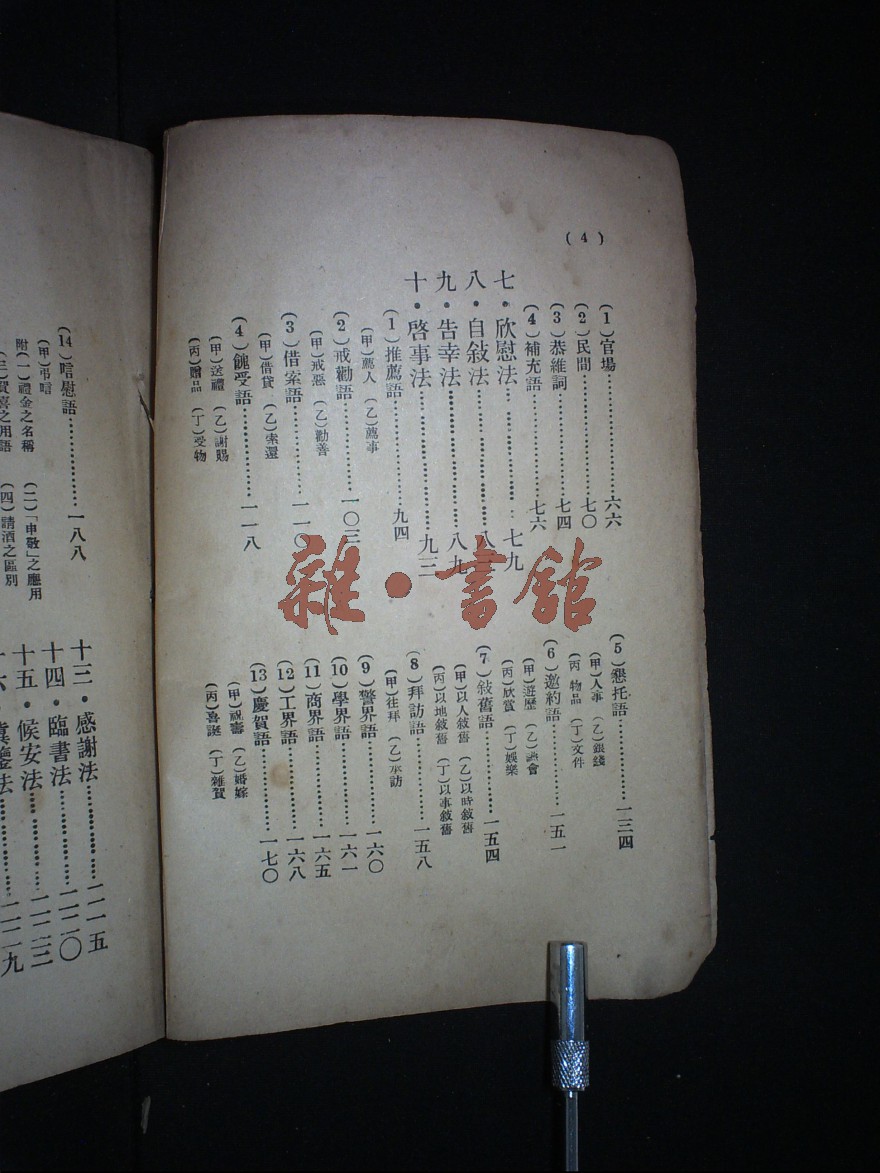 (4)
(1)官場……六六
(2)民間……七〇
(3)恭維詞……七四
(4)補充語……七六
七・欣慰法……七九
八・自敍法……八三
九・告幸法……八九
十・啓事法……九三
(1)推薦語……九四
(甲)薦人 (乙)薦事
(2)戒勸語……一〇三
(甲)戒惡 (乙)勸善
(3)借索語……一一〇
(甲)借貸 (乙)索還
(4)餽受語……一一八
(甲)送禮 (乙)謝賜
(丙)贈品 (丁)受物
(5)懇托語……一三四
(甲)人事 (乙)銀錢
(丙)物品 (丁)文件
(6)邀約語……一五一
(甲)遊歷 (乙)讌會
(丙)欣賞 (丁)娛樂
(7)敍舊語……一五四
(甲)以人敍舊 (乙)以時敍舊
(丙)以地敍舊 (丁)以事敍舊
(8)拜訪語……一五八
(甲)往拜 (乙)承訪
(9)警界語……一六〇
(10)學界語……一六一
(11)商界語……一六五
(12)工界語……一六八
(13)慶賀語……一七〇
(甲)祝壽 (乙)婚嫁
(丙)喜誕 (丁)雜賀
(14)唁慰語……一八八
(甲)弔唁
附(一)禮金之名稱 (二)「申敬」之應用
(三)賀喜之用語 (四)請酒之區別
十三・感謝法……二一五
十四・臨書法……二二〇
十五・候安法……二二三
雜・書館